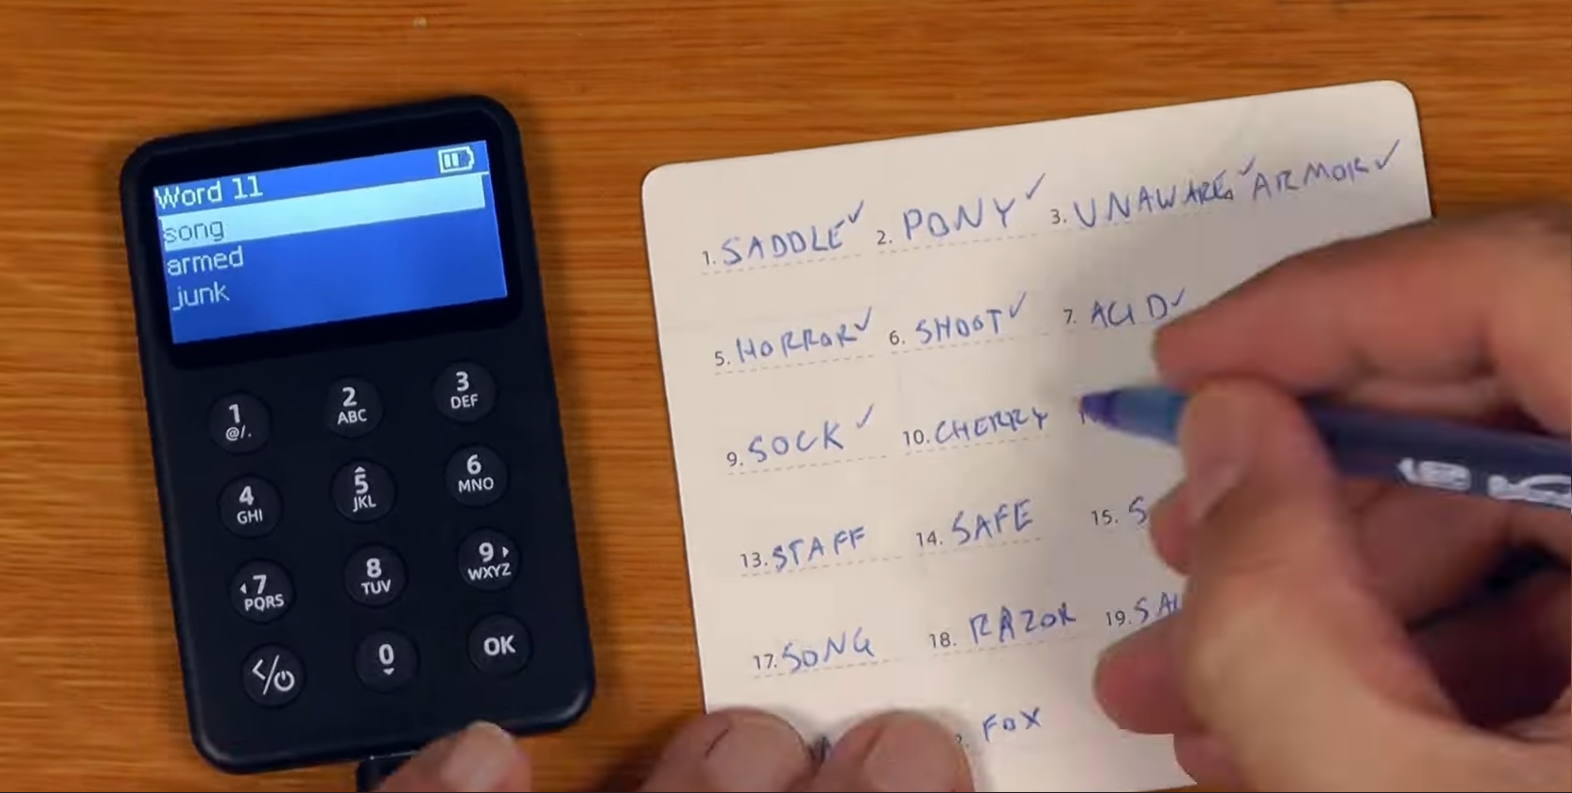 Word 11
song
armed
junk
1 @/.
2 ABC
3 DEF
4 GHI
5 JKL
6 MNO
7 PQRS
8 TUV
9 WXYZ
0
OK
1. SADDLE✓ 2. PONY✓ 3. UNAWARE✓ ARMOR✓
5. HORROR✓ 6. SHOOT✓ 7. ACID✓
9. SOCK✓ 10. CHERRY
13. STAFF 14. SAFE 15. S
17. SONG 18. RAZOR 19. SA
FOX